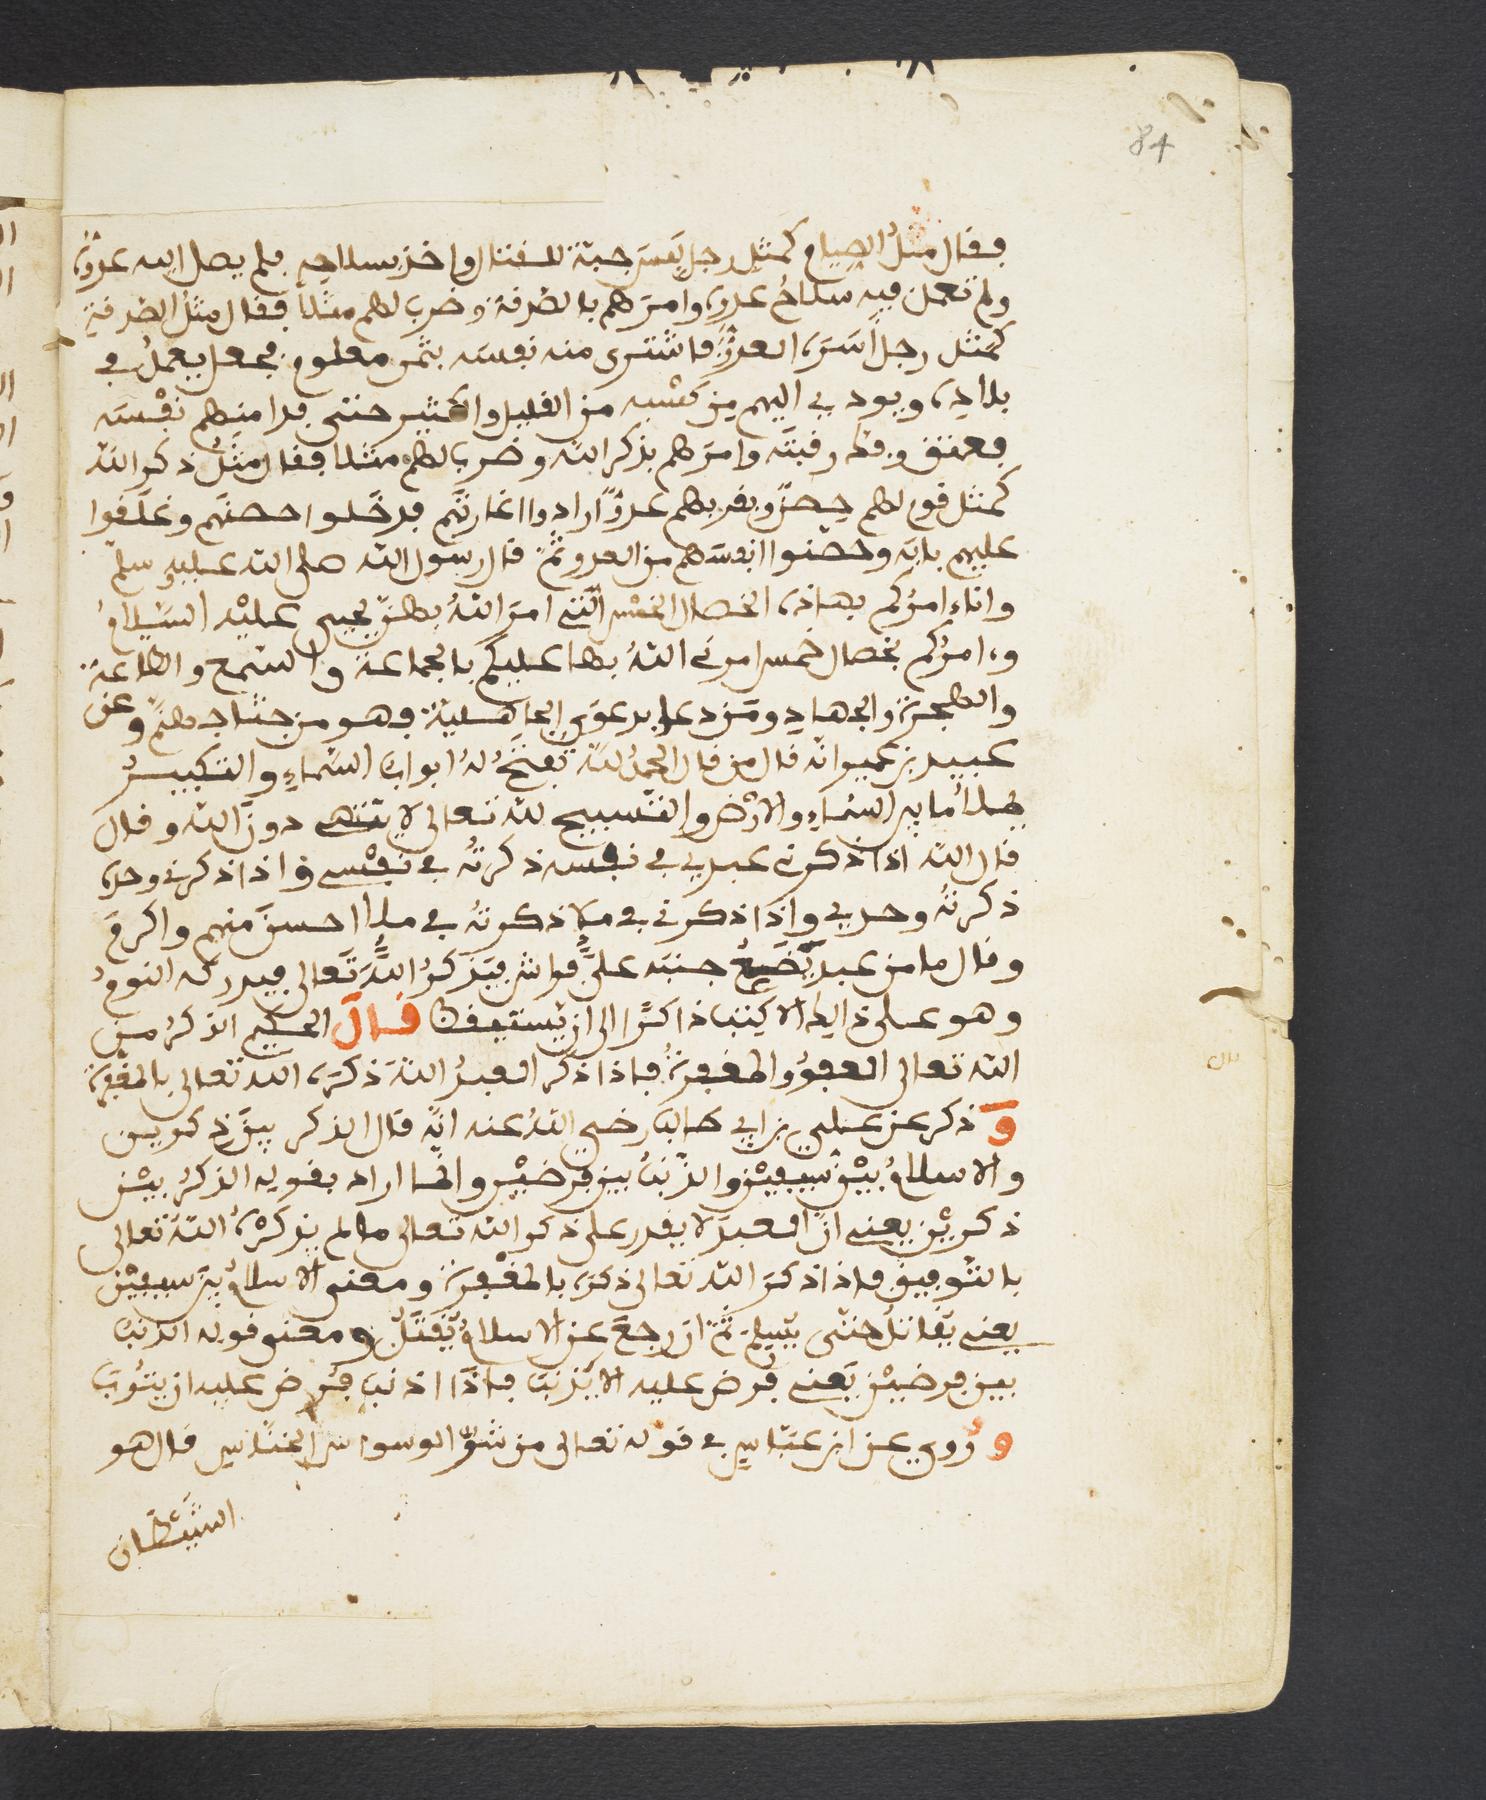 84
فقال مثل الصيام كمثل رجل لبس جبة للقتال واخذ بسلاحه فلم يصل اليه عدوه
ولم تعمل فيه سلاح عدوه وامرهم بالصدقة وضرب لهم مثلا فقال مثل الصدقة
كمثل رجل اسره العدو فاشترى منه نفسه بثمن معلوم فجعل يعمل في
بلاده ويودي اليهم من كسبه من القليل والكثير حتى فدا منهم نفسه
فعتق وفك رقبته وامرهم بذكر الله وضرب لهم مثلا فقال مثل ذكر الله
كمثل قوم لهم حصن وبقربهم عدو ارادوا اغارتهم فدخلوا حصنهم وغلقوا
عليهم بابه وحصنوا انفسهم من العدو ثم قال رسول الله صلى الله عليه وسلم
وانا امركم بهاذه الخصال الخمس التي امر الله بهن يحيى عليه السلام
وامركم بخصال خمس امرني الله بها عليكم بالجماعة والسمع والطاعة
والهجرة والجهاد ومن دعا بدعوى الجاهلية فهو من جثا جهنم وعن
عبيد بن عمير انه قال من قال الحمد لله تفتح له ابواب السماء والتكبير
يملا ما بين السماء والارض والتسبيح لله تعالى لا ينتهي دون الله وقال
قال الله اذا ذكرني عبدي في نفسه ذكرته في نفسي واذا ذكرني وحده
ذكرته وحدي واذا ذكرني في ملا ذكرته في ملا احسن منهم واكرم
وقال ما من عبد يضع جنبه على فراش فيذكر الله تعالى فيدركه النوم
وهو على ذالك الا كتب ذاكرا الى ان يستيقظ قال الحكيم الذكر من
الله تعالى العفو والمغفرة فاذا ذكر العبد الله ذكره الله تعالى بالمغفرة
وذكر عن علي بن ابي طالب رضي الله عنه انه قال الذكر بين ذكرين
والاسلام بين سيفين والذنب بين فرضين وانما اراد بقوله الذكر بين
ذكرين يعني ان العبد لا يقدر على ذكر الله تعالى ما لم يذكره الله تعالى
بالتوفيق فاذا ذكر الله تعالى ذكره بالمغفرة ومعنى الاسلام بين سيفين
يعني يقاتل حتى يسلم ثم ان رجع عن الاسلام يقتل ومعنى قوله الذنب
بين فرضين يعني فرض عليه الا يذنب فاذا اذنب فرض عليه ان يتوب
وروي عن ابن عباس في قوله تعالى من شر الوسواس الخناس قال هو
الشيطان